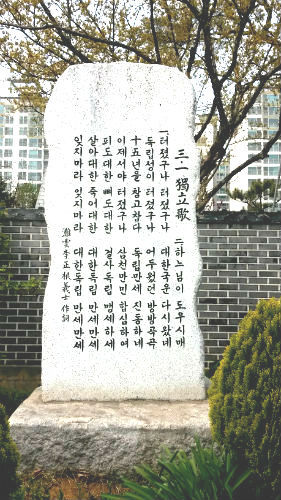 三·一 獨立歌
一 터졌구나 터졌구나
독립성이 터졌구나
十五년을 참고참다
이제서야 터졌구나
피도대한 뼈도대한
살아대한 죽어대한
잊지마라 잊지마라
二 하느님이 도우시매
대한국운 다시왔네
어두웠던 방방곡곡
독립만세 진동하네
삼천만민 합심하여
결사독립 맹세하세
대한독립 만세만세
대한독립 만세만세
灘雲李正根義士作詞